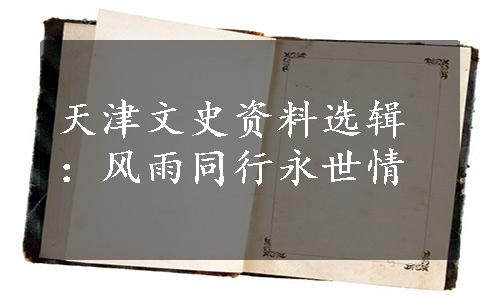 天津文史资料选辑
：风雨同行永世情